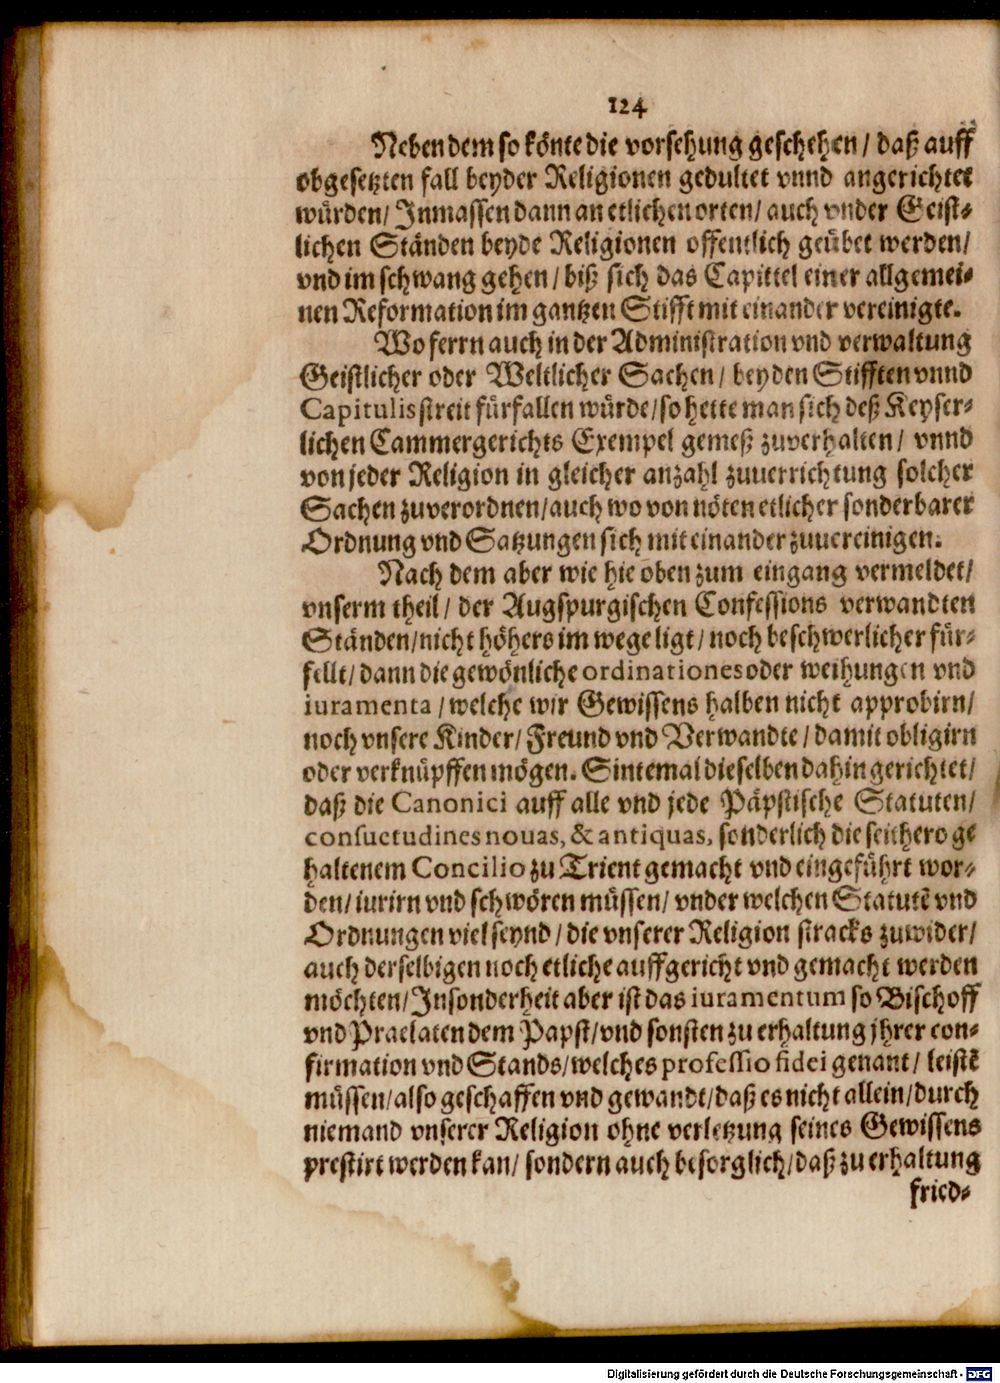 124
Neben dem so könte die vorsehung geschehen / daß auff
obgesetzten fall beyder Religionen gedultet vnnd angerichtet
würden / Inmassen dann an etlichen orten / auch vnder Geist⸗
lichen Ständen beyde Religionen offentlich geübet werden /
vnd im schwang gehen / biß sich das Capittel einer allgemei⸗
nen Reformation im gantzen Stifft mit einander vereinigte.
Wo ferrn auch in der Administration vnd verwaltung
Geistlicher oder Weltlicher Sachen / bey den Stifften vnnd
Capitulis streit fürfallen würde / so hette man sich deß Keyser⸗
lichen Cammergerichts Exempel gemeß zuverhalten / vnnd
von jeder Religion in gleicher anzahl zuuerrichtung solcher
Sachen zuverordnen / auch wo von nöten etlicher sonderbarer
Ordnung vnd Satzungen sich mit einander zuuereinigen.
Nach dem aber wie hie oben zum eingang vermeldet /
vnserm theil / der Augspurgischen Confessions verwandten
Ständen / nicht höhers im wege ligt / noch beschwerlicher für⸗
fellt / dann die gewönliche ordinationes oder weihungen vnd
iuramenta / welche wir Gewissens halben nicht approbirn /
noch vnsere Kinder / Freund vnd Verwandte / damit obligirn
oder verknüpffen mögen. Sintemal dieselben dahin gerichtet /
daß die Canonici auff alle vnd jede Päpstische Statuten /
consuetudines nouas, & antiquas, sonderlich die seithero ge
haltenem Concilio zu Trient gemacht vnd eingeführt wor⸗
den / iurirn vnd schwören müssen / vnder welchen Statutē vnd
Ordnungen viel seynd / die vnserer Religion stracks zuwider /
auch derselbigen noch etliche auffgericht vnd gemacht werden
möchten / Insonderheit aber ist das iuramentum so Bischoff
vnd Praelaten dem Papst / vnd sonsten zu erhaltung jhrer con⸗
firmation vnd Stands / welches professio fidei genant / leistē
müssen / also geschaffen vnd gewandt / daß es nicht allein / durch
niemand vnserer Religion ohne verletzung seines Gewissens
prestirt werden kan / sondern auch besorglich / daß zu erhaltung
fried⸗
Digitalisierung gefördert durch die Deutsche Forschungsgemeinschaft - DFG